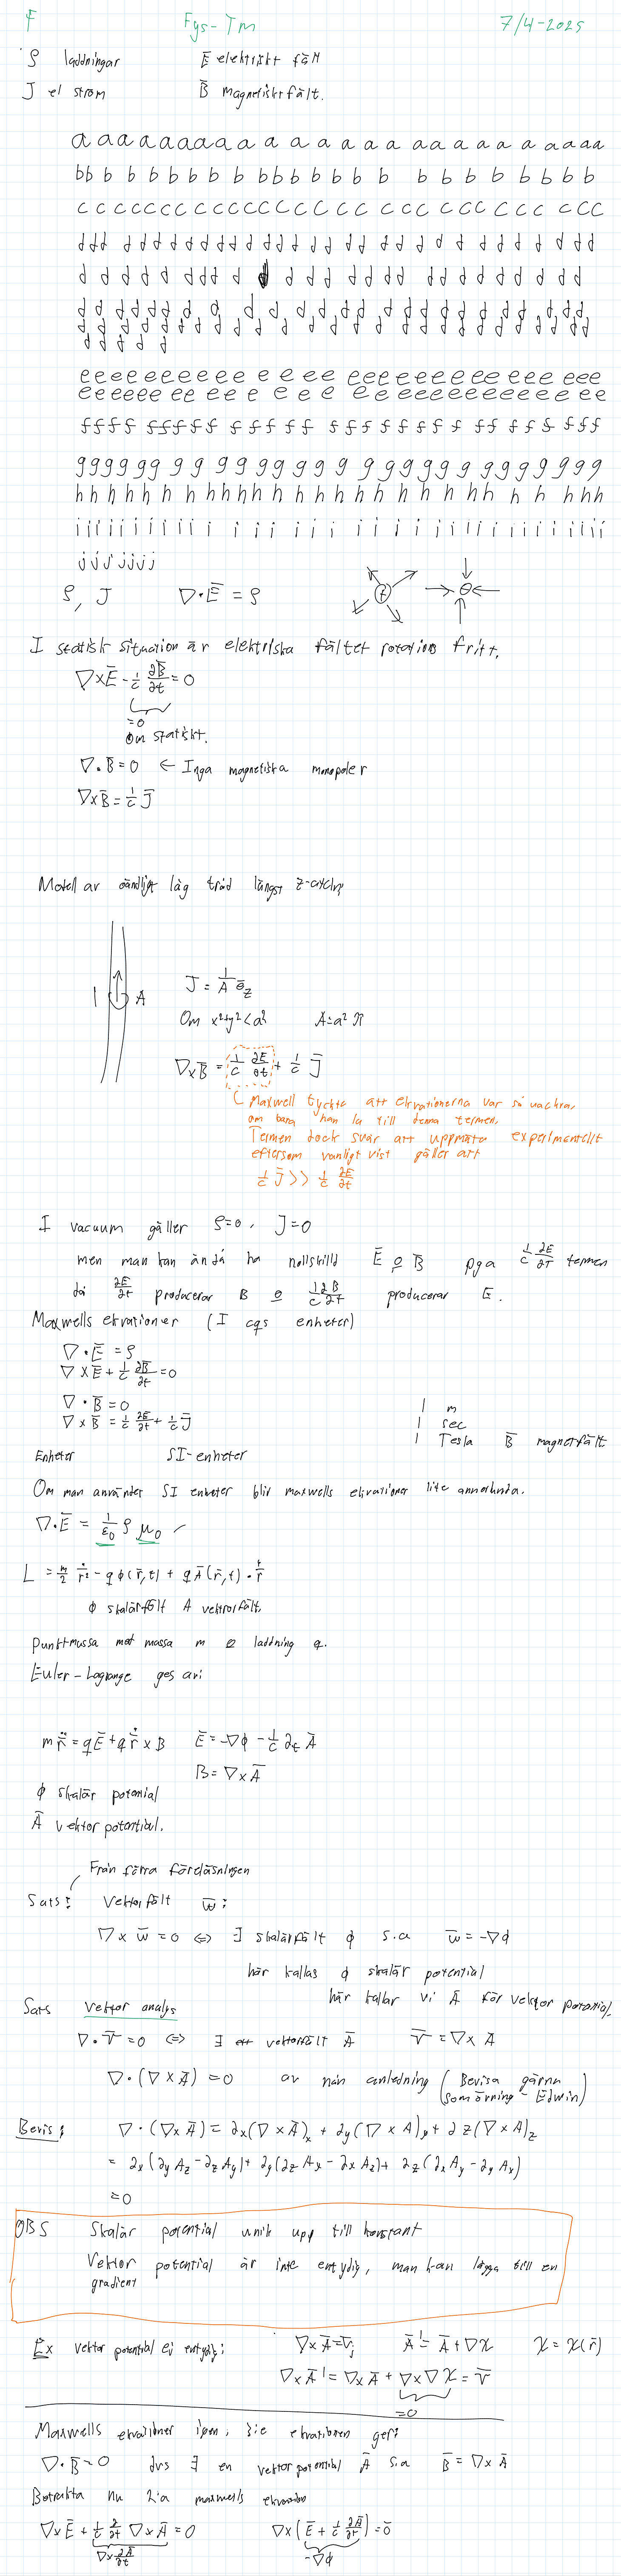 F Fys-Tm 7/4-2025
ρ laddningar Ē elektriskt fält
J el ström B̄ magnetiskt fält.
a a a a a a a a a a a a a a a a a a a a a a a a a a a a
b b b b b b b b b b b b b b b b b b b b b b b b b
c c c c c c c c c c c c c c c c c c c c c c c c c c c c c
d d d d d d d d d d d d d d d d d d d d d d d d d d d d d
d d d d d d d d d d d d d d d d d d d d d d d d
d d d d d d d d d d d d d d d d d d d d d d d d d d
d d d d d d d d d d d d d d d d d d d d d d d d d d
d d d d d d
e e e e e e e e e e e e e e e e e e e e e e e e e e e
e e e e e e e e e e e e e e e e e e e e e e e e e e e
f f f f f f f f f f f f f f f f f f f f f f f f f f f f f
g g g g g g g g g g g g g g g g g g g g g g g g g g g
h h h h h h h h h h h h h h h h h h h h h h h h h h
i i i i i i i i i i i i i i i i i i i i i i i i i i i i i i i
j j j j j j j
ρ, J ∇·Ē = ρ + ⊖
I statisk situation är elektriska fältet rotations fritt.
∇×Ē - 1/c ∂B̄/∂t = 0
=0
om statiskt.
∇·B̄ = 0 ← Inga magnetiska monopoler
∇×B̄ = 1/c J̄
Modell av oändligt låg tråd längst z-axeln
I A J = I/A ē_z
Om x²+y²<a² A=a²π
∇×B̄ = 1/c ∂E/∂t + 1/c J̄
Maxwell tyckte att ekvationerna var så vackra
om bara han la till denna termen.
Termen dock svår att uppmäta experimentellt
eftersom vanligt vist gäller att
1/c J̄ >> 1/c ∂E/∂t
I vacuum gäller ρ=0, J=0
men man kan ändå ha nollskilld Ē o B̄ pga 1/c ∂E/∂t termen
då ∂E/∂t producerar B o 1/c ∂B/∂t producerar E.
Maxwells ekvationer (I cgs enheter)
∇·Ē = ρ
∇×Ē + 1/c ∂B̄/∂t = 0
∇·B̄ = 0
∇×B̄ = 1/c ∂E/∂t + 1/c J̄
1 m
1 sec
1 Tesla B̄ magnetfält
Enheter SI-enheter
Om man använder SI enheter blir maxwells ekvationer lite annorlunda.
∇·Ē = 1/ε₀ ρ μ₀
L = m/2 ṙ̄² - qϕ(r̄,t) + qĀ(r̄,t)·ṙ̄
ϕ skalärfält A vektorfält.
Punktmassa med massa m o laddning q.
Euler-Lagrange ges av:
m r̄̈ = qĒ + q ṙ̄ × B Ē = -∇ϕ - 1/c ∂ₜ Ā
B = ∇×Ā
ϕ skalär potenial
Ā vektor potential.
Från förra föreläsningen
Sats: Vektorfält w̄:
∇×w̄ = 0 ⇔ ∃ skalärfält ϕ s.a w̄ = -∇ϕ
här kallas ϕ skalär potential
här kallar vi Ā för vektor potential.
Sats vektor analys
∇·v̄ = 0 ⇔ ∃ ett vektorfält Ā v̄ = ∇×Ā
∇·(∇×Ā) = 0 av nån anledning (Bevisa gärna
som övning - Edwin)
Bevis: ∇·(∇×Ā) = ∂x(∇×Ā)x + ∂y(∇×A)y + ∂z(∇×A)z
= ∂x(∂y Az - ∂z Ay) + ∂y(∂z Ax - ∂x Az) + ∂z(∂x Ay - ∂y Ax)
=0
OBS Skalär potential unik upp till konstant
Vektor potential är inte entydig, man kan lägga till en
gradient
Ex vektor potential ej entydig: ∇×Ā = v̄; Ā' = Ā + ∇χ χ = χ(r̄)
∇×Ā' = ∇×Ā + ∇×∇χ = v̄
=0
Maxwells ekvationer igen, 3:e ekvationen ger:
∇·B̄ = 0 dvs ∃ en vektorpotential Ā s.a B̄ = ∇×Ā
Betrakta nu 2:a maxwells ekvation
∇×Ē + 1/c ∂/∂t ∇×Ā = 0 ∇×(Ē + 1/c ∂Ā/∂t) = 0̄
∇×∂Ā/∂t -∇ϕ